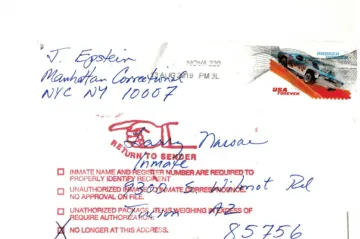 J. Epstein
Manhattan Correctional
NYC NY 10007
NOVA 220
AUG 2019 PM 3L
USA
FOREVER
Larry Nassar
RETURN TO SENDER
Inmate
INMATE NAME AND REGISTER NUMBER ARE REQUIRED TO
PROPERLY IDENTIFY RECIPIENT
9300 S. Wilmot Rd
UNAUTHORIZED INMATE TO INMATE CORRESPONDENCE.
NO APPROVAL ON FILE.
Tucson AZ
UNAUTHORIZED PACKAGE. ITEMS WEIGHING OUNCES OF
REQUIRE AUTHORIZATION.
X NO LONGER AT THIS ADDRESS.
85756